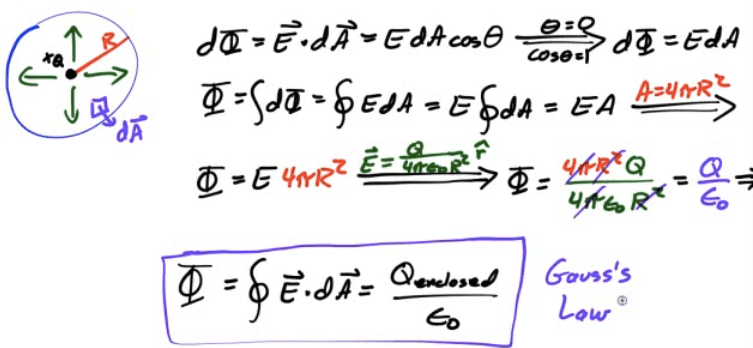 +Q R dA⃗
dΦ = E⃗·dA⃗ = E dA cosθ θ=0 cosθ=1 ⟹ dΦ = E dA
Φ = ∫dΦ = ∮ E dA = E ∮ dA = EA A=4πR² ⟹
Φ = E 4πR² E⃗ = Q/(4πε₀R²) r̂ ⟶ Φ = 4πR²Q/(4πε₀R²) = Q/ε₀ ⇒
Φ = ∮ E⃗·dA⃗ = Qenclosed/ε₀
Gauss's
Law